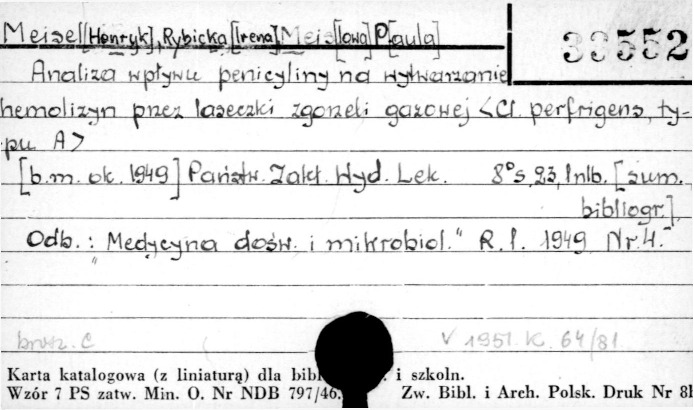 Meisel [Henryk], Rybicka [Irena] Meis[lowa] P[aula]
33552
Analiza wpływu penicyliny na wytwarzanie
hemolizyn przez laseczki zgorzeli gazowej <Cl. perfrigens, ty-
pu A>
[b.m. ok. 1949] Państw. Zakł. Wyd. Lek. 8° s. 23, 1 nlb. [sum.,
bibliogr.],
Odb.: "Medycyna dośw. i mikrobiol." R. 1. 1949 Nr 4.
brosz. C V 1951. K. 64/81
Karta katalogowa (z liniaturą) dla i szkoln.
Wzór 7 PS zatw. Min. O. Nr NDB 797/46. Zw. Bibl. i Arch. Polsk. Druk Nr 81